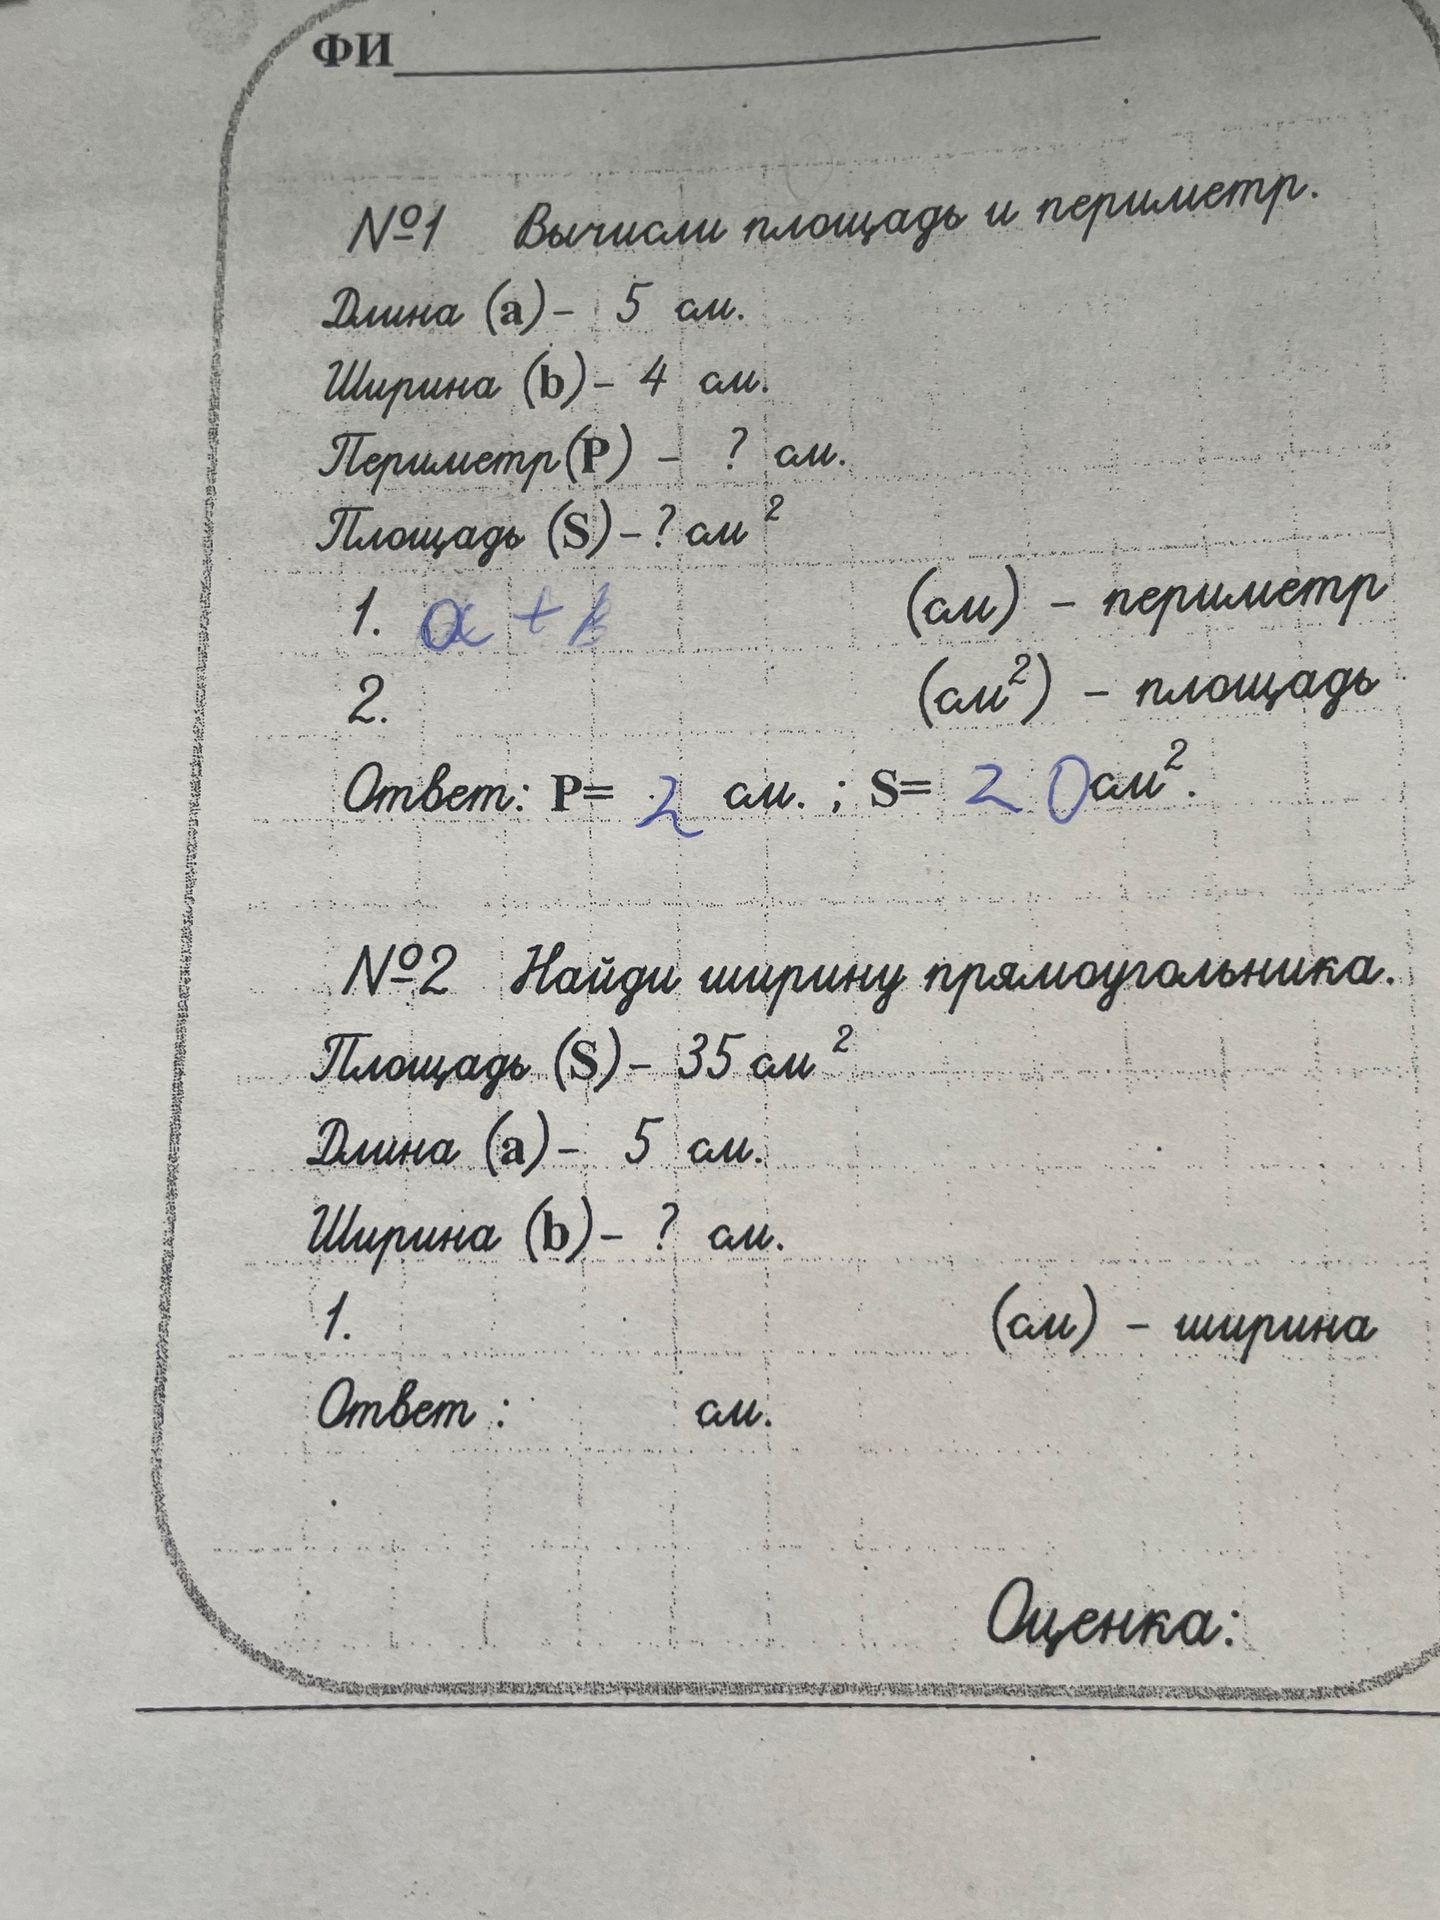 ФИ
№1 Вычисли площадь и периметр.
Длина (a) – 5 см.
Ширина (b) – 4 см.
Периметр (P) – ? см.
Площадь (S) – ? см²
1. a + b (см) – периметр
2. (см²) – площадь
Ответ: P= 2 см. ; S= 20 см².
№2 Найди ширину прямоугольника.
Площадь (S) – 35 см²
Длина (a) – 5 см.
Ширина (b) – ? см.
1. (см) – ширина
Ответ : см.
Оценка: